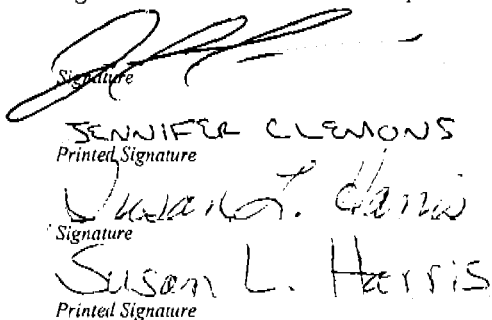 Signature
JENNIFER CLEMONS
Printed Signature
Susan L. Harris
Signature
Susan L. Harris
Printed Signature